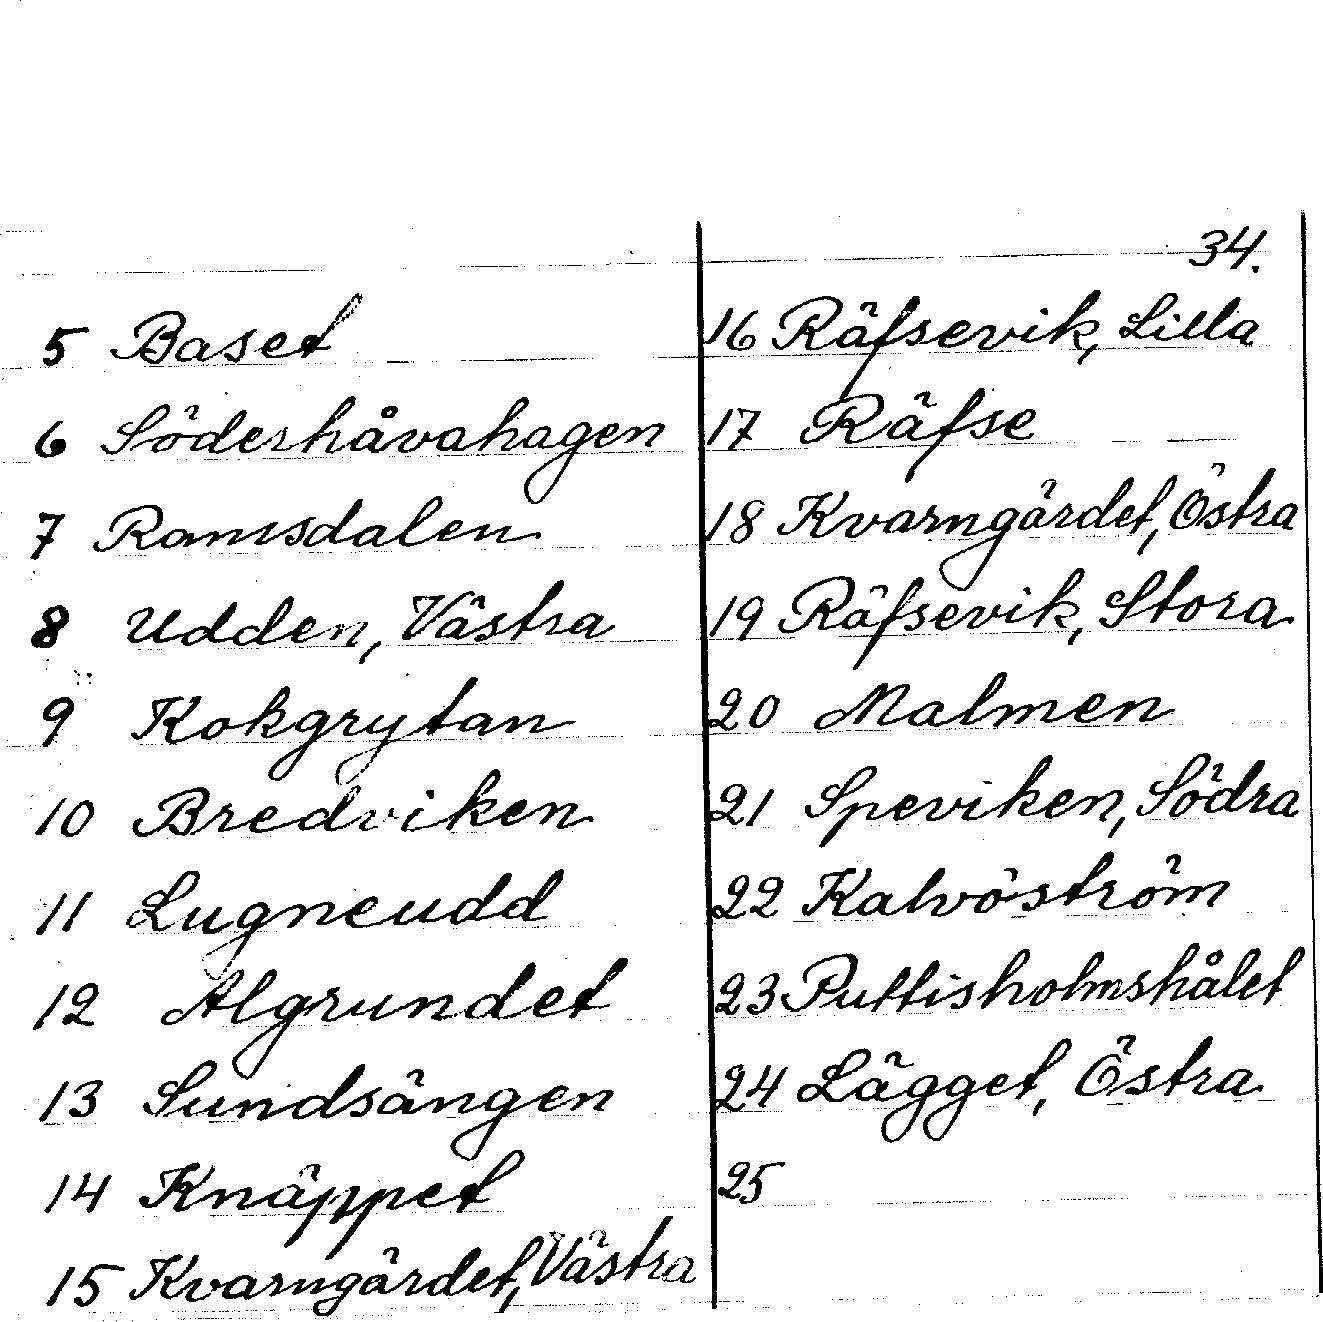 34.
5 Baset
6 Söderhåvahagen
7 Ramsdalen
8 Udden, Västra
9 Kokgrytan
10 Bredviken
11 Lugneudd
12 Algrundet
13 Sundsängen
14 Knäppet
15 Kvarngärdet, Västra
16 Räfsevik, Lilla
17 Räfse
18 Kvarngärdet, Östra
19 Räfsevik, Stora
20 Malmen
21 Speviken, Södra
22 Kalvöström
23 Puttisholmshålet
24 Lägget, Östra
25